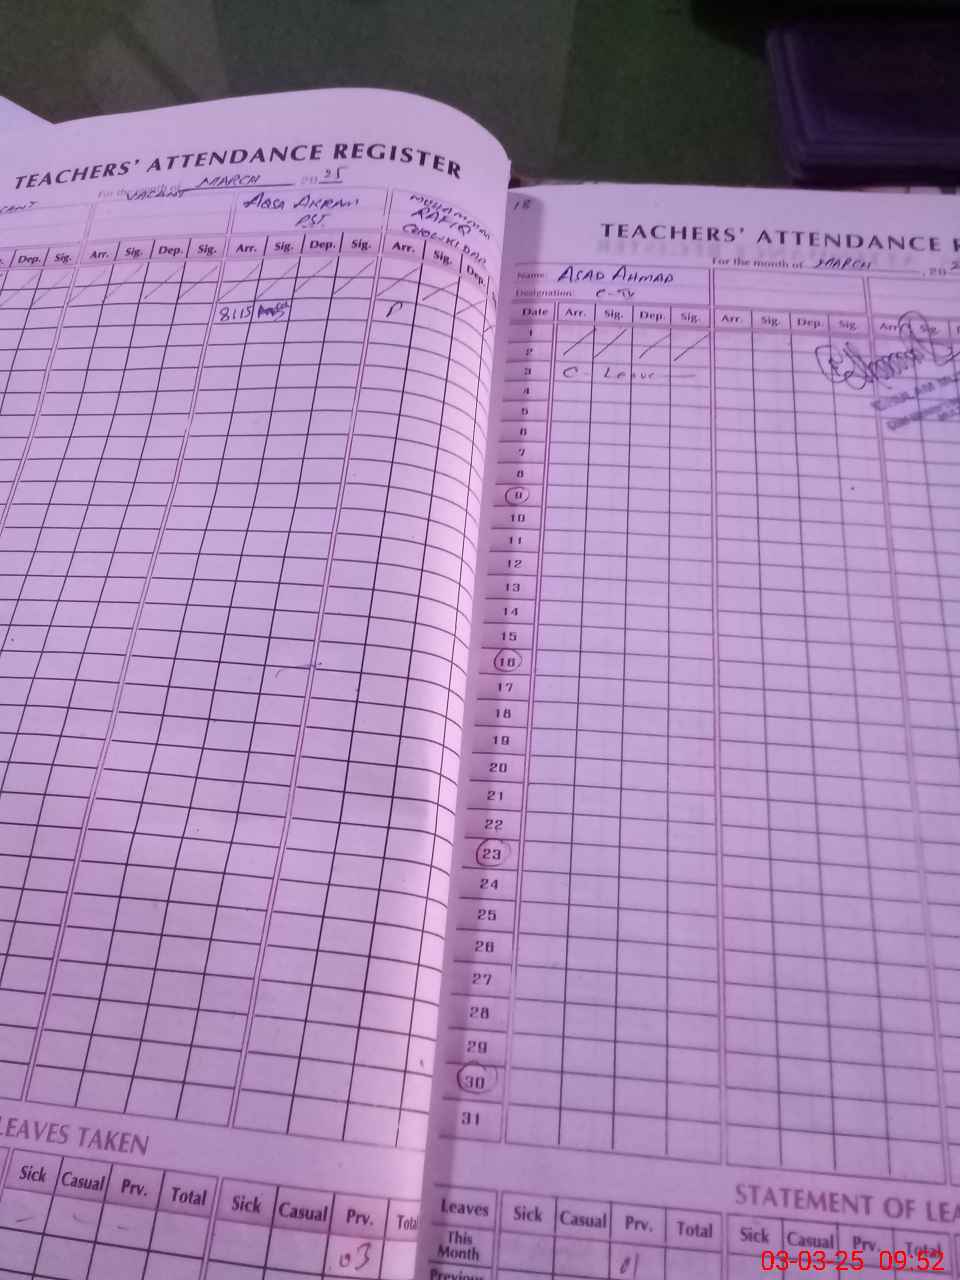 TEACHERS' ATTENDANCE REGISTER
For the month of MARCH 2025
VACANT
AQSA AKRAM
PST.
MUHAMMAD
RAFIQ
CHOWKIDAR
Dep. Sig. Arr. Sig. Dep. Sig. Arr. Sig. Dep. Sig. Arr. Sig. Dep.
8:15
P
LEAVES TAKEN
Sick Casual Prv. Total Sick Casual Prv. Total
03
18
TEACHERS' ATTENDANCE R
For the month of MARCH, 202
Name: ASAD AHMAD
Designation:
Date Arr. Sig. Dep. Sig. Arr. Sig. Dep. Sig. Arr. Sig.
1
2
3 C- Leave
4
5
6
7
8
9
10
11
12
13
14
15
16
17
18
19
20
21
22
23
24
25
26
27
28
29
30
31
STATEMENT OF LEA
Leaves Sick Casual Prv. Total Sick Casual Prv. Total
This
Month 01
Previous
03-03-25 09:52